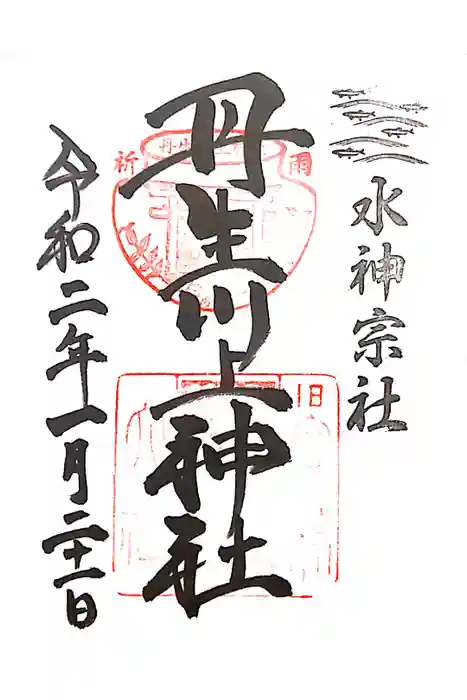 水神宗社
丹生川上神社
祈雨
旧
令和二年一月二十一日